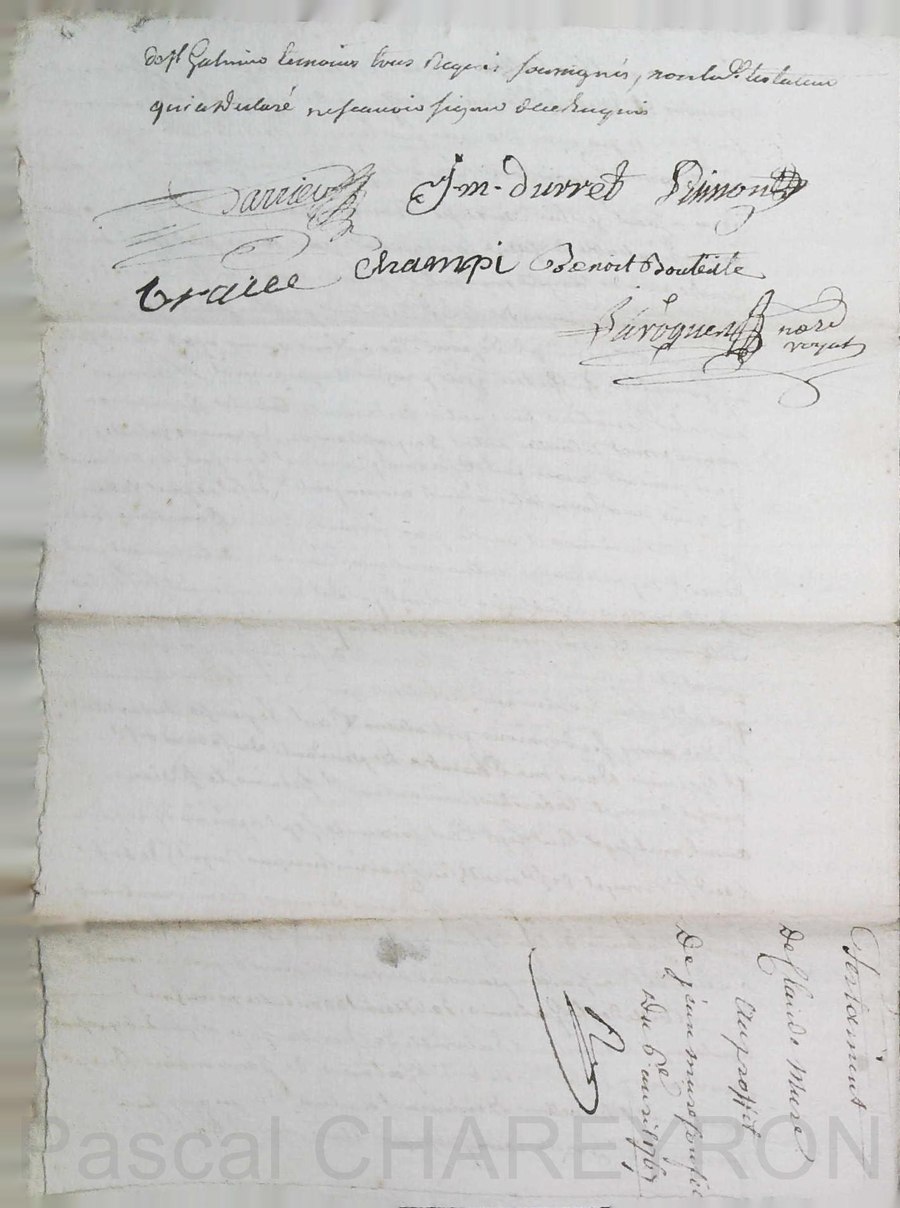 de St Galmier temoins tous Requis soussignés, non led. testateur
qui a declaré ne scavoir signer de ce Requis
Darrieu J. m. Durret Rimon
traice Champi Benoit Bouteille
Laroque nore
royal
Testament
De Claude Mure
Au proffit
De jean mure son fils
Du 6e avril 1767
Pascal CHAREYRON